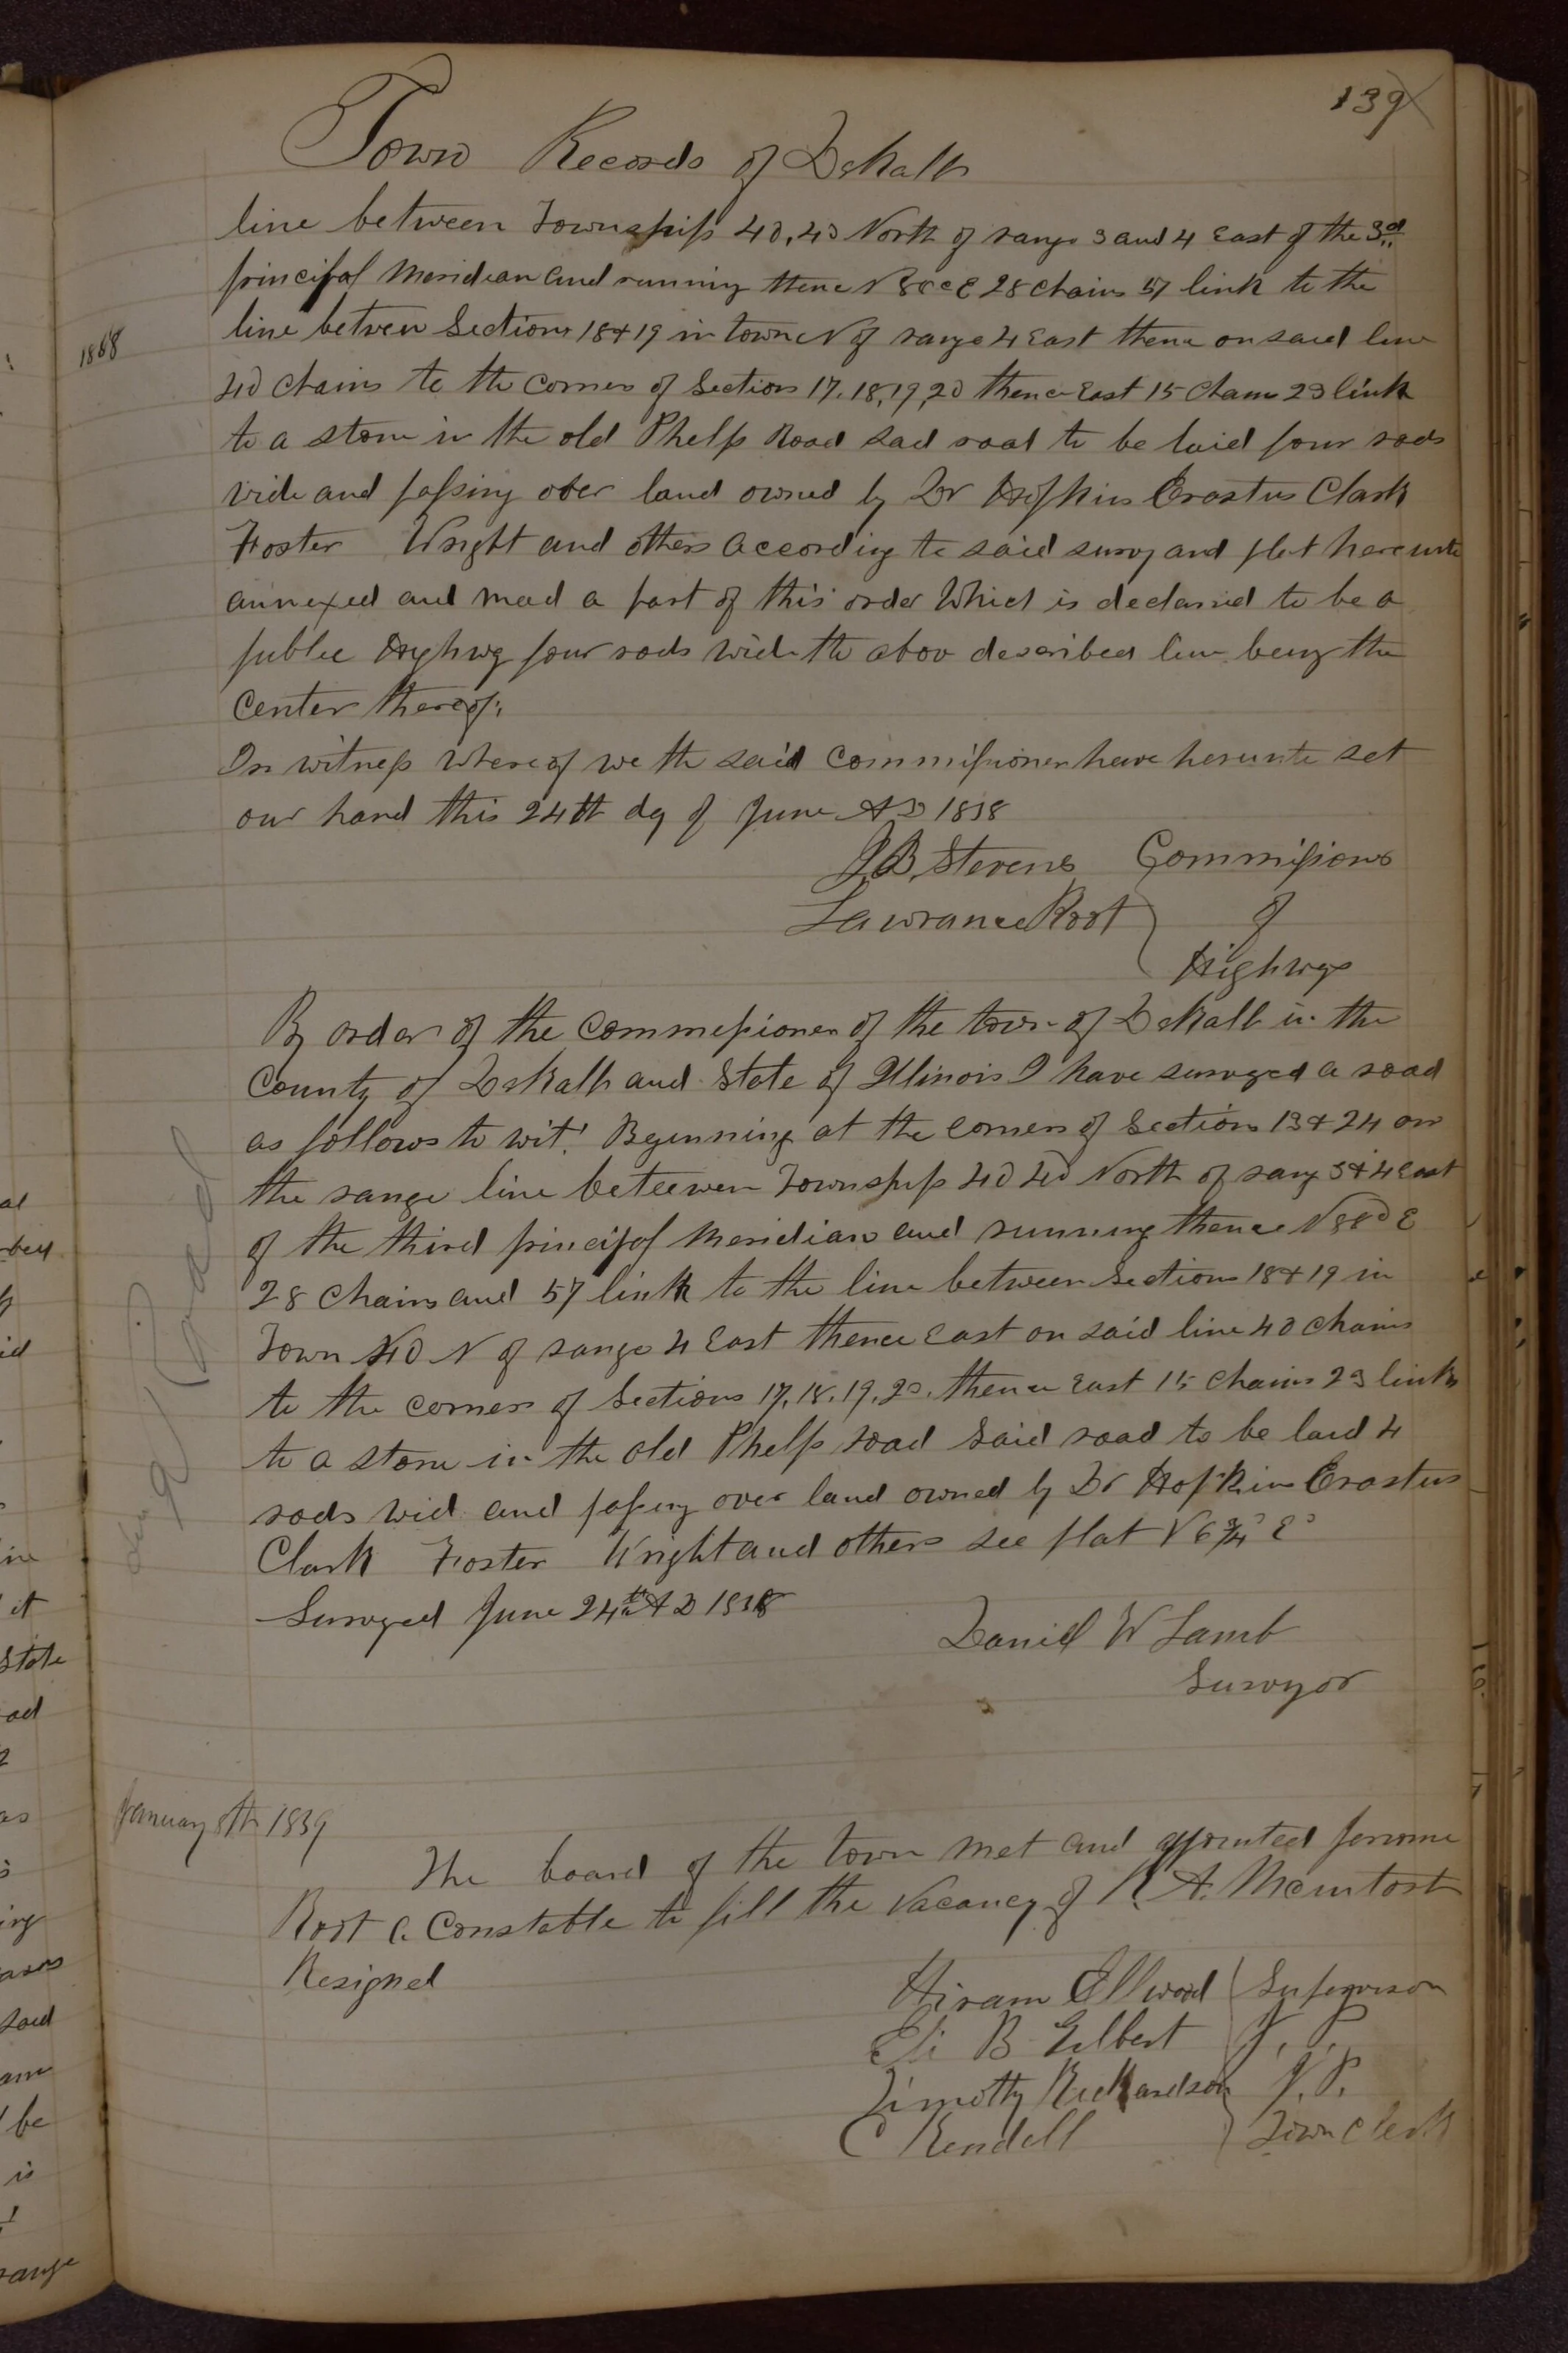 139
Town Records of Dekalb
line between Townships 40, 40 North of range 3 and 4 East of the 3rd
principal Meridian and running thence N 88° E 28 chains 57 link to the
1868
line betwen Sections 18 & 19 in town N of range 4 East thence on said line
40 chains to the corner of Section 17, 18, 19, 20 thence East 15 Chains 23 link
to a stone in the old Phelps Road said road to be laid four rods
wide and passing over land owned by Dr Hopkins Erastus Clark
Foster Wright and others according to said survy and plat hereunto
annexed and mad a part of this order Which is declared to be a
public Highwy four rods wide the abov described line being the
center thereof.
In witness Whereof we the said Commissioner have herunto set
our hand this 24th dy of June AD 1858
J.B. Stevens Commissioners
Lawrance Root of
Highwys
By order of the Commissioner of the town of Dekalb in the
County of Dekalb and State of Illinois I have surveyed a road
as follows to wit! Beginning at the corners of Section 13 & 24 on
the range line beteewen Townships 40 40 North of rang 3 & 4 East
of the third principal Meridian and running thence N 88° E
28 Chains and 57 link to the line between Sections 18 & 19 in
Town 40 N of range 4 East thence East on said line 40 chains
to the corners of Sections 17, 18, 19, 20, thence East 15 chains 23 links
to a stone in the old Phelps road said road to be laid 4
rods wid and passing over land owned by Dr Hopkins Erastus
Clark Foster Wright and others see plat V 6 3/4° E°
Surveyed June 24th AD 1858
Daniel W Lamb
Survyor
January 8th 1859
The board of the town met and appointed Jerome
Root a Constable to fill the vacancy of A. McIntosh
Resigned
Hiram Ellwood Supervisor
Eli B Gilbert J. P.
Timothy Richardson J. P.
C Kendall Town Clerk